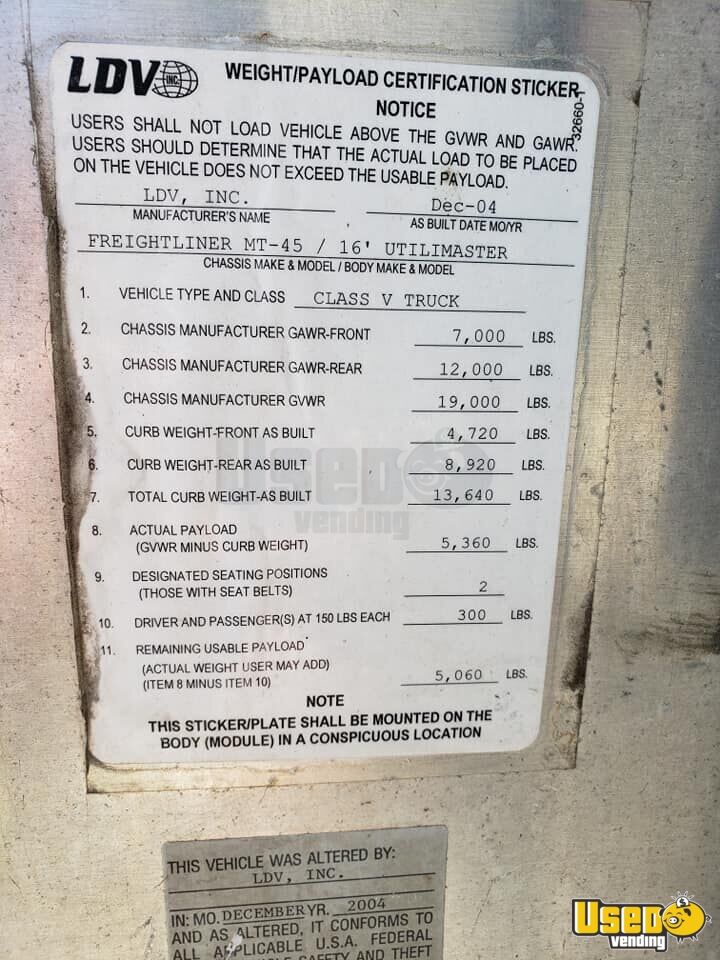 LDV INC.
WEIGHT/PAYLOAD CERTIFICATION STICKER
32660-1
NOTICE
USERS SHALL NOT LOAD VEHICLE ABOVE THE GVWR AND GAWR.
USERS SHOULD DETERMINE THAT THE ACTUAL LOAD TO BE PLACED
ON THE VEHICLE DOES NOT EXCEED THE USABLE PAYLOAD.
LDV, INC. Dec-04
MANUFACTURER'S NAME AS BUILT DATE MO/YR
FREIGHTLINER MT-45 / 16' UTILIMASTER
CHASSIS MAKE & MODEL / BODY MAKE & MODEL
1. VEHICLE TYPE AND CLASS CLASS V TRUCK
2. CHASSIS MANUFACTURER GAWR-FRONT 7,000 LBS.
3. CHASSIS MANUFACTURER GAWR-REAR 12,000 LBS.
4. CHASSIS MANUFACTURER GVWR 19,000 LBS.
5. CURB WEIGHT-FRONT AS BUILT 4,720 LBS.
6. CURB WEIGHT-REAR AS BUILT 8,920 LBS.
7. TOTAL CURB WEIGHT-AS BUILT 13,640 LBS.
Used vending
8. ACTUAL PAYLOAD
(GVWR MINUS CURB WEIGHT) 5,360 LBS.
9. DESIGNATED SEATING POSITIONS
(THOSE WITH SEAT BELTS) 2
10. DRIVER AND PASSENGER(S) AT 150 LBS EACH 300 LBS.
11. REMAINING USABLE PAYLOAD
(ACTUAL WEIGHT USER MAY ADD)
(ITEM 8 MINUS ITEM 10) 5,060 LBS.
NOTE
THIS STICKER/PLATE SHALL BE MOUNTED ON THE
BODY (MODULE) IN A CONSPICUOUS LOCATION
THIS VEHICLE WAS ALTERED BY:
LDV, INC.
IN: MO. DECEMBER YR. 2004
AND AS ALTERED, IT CONFORMS TO
ALL APPLICABLE U.S.A. FEDERAL
SAFETY AND THEFT
Used vending